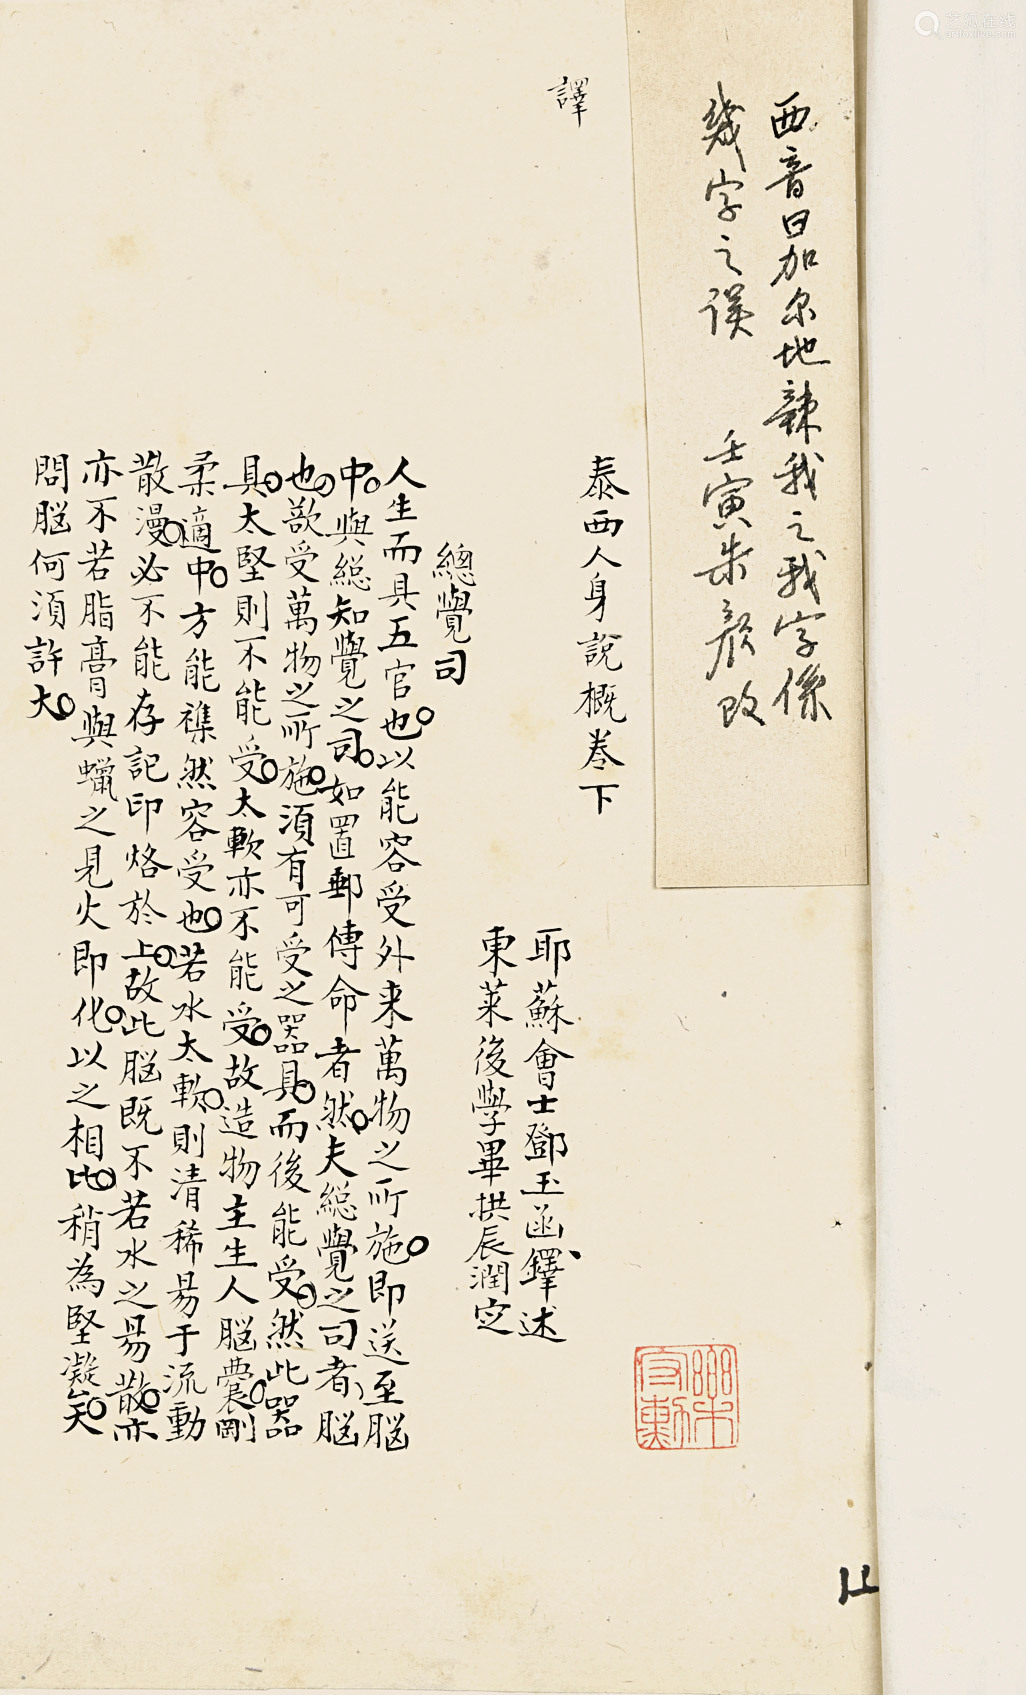 西音曰加尔地辣我之我字係
幾字之误　壬寅朱颜改
譯
泰西人身説概巻下
耶蘇會士鄧玉函鐸述
東萊後學畢拱辰潤定
總覺司
人生而具五官也以能容受外来萬物之所施即送至脳
中與総知覺之司如置郵傳命者然夫総覺之司者脳
也歆受萬物之所施湏有可受之器具而後能受然此器
具太堅則不能受太軟亦不能受故造物主生人脳囊剛
柔適中方能襍然容受也若水太軟則清稀昜于流動
散漫必不能存記印烙於上故此脳既不若水之昜散亦
亦不若脂膏與蠟之見火即化以之相比稍為堅凝矣
問脳何湏許大
艺狐在线
artfoxlive.com